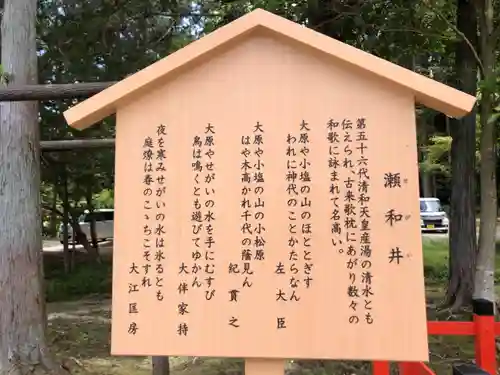 瀬和井
せがい
第五十六代清和天皇産湯の清水とも
伝えられ、古来歌枕にあがり数々の
和歌に詠まれて名高い。
大原や小塩の山のほとゝぎす
われに神代のことかたらなん
左大臣
大原や小塩の山の小松原
はや木高かれ千代の蔭見ん
紀貫之
大原やせがいの水を手にむすび
鳥は鳴くとも遊びてゆかん
大伴家持
夜を寒みせがいの水は氷るとも
庭燎は春のこゝちこそすれ
大江匡房